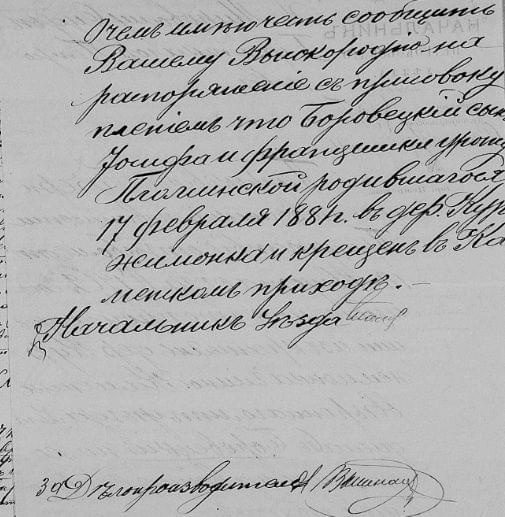 О чемъ имѣю честь сообщить
Вашему Высокородію на
распоряженіе съ присовоку
пленіемъ что Боровецкій сынъ
Іосифа и Францишки урожд
родившагося
17 февраля 1881 г. въ дер. Кур
жимонка и крещенъ въ Ка
метскомъ приходѣ.-
Начальникъ Уѣзда
За Дѣлопроизводителя
НАЧАЛЬНИКЪ